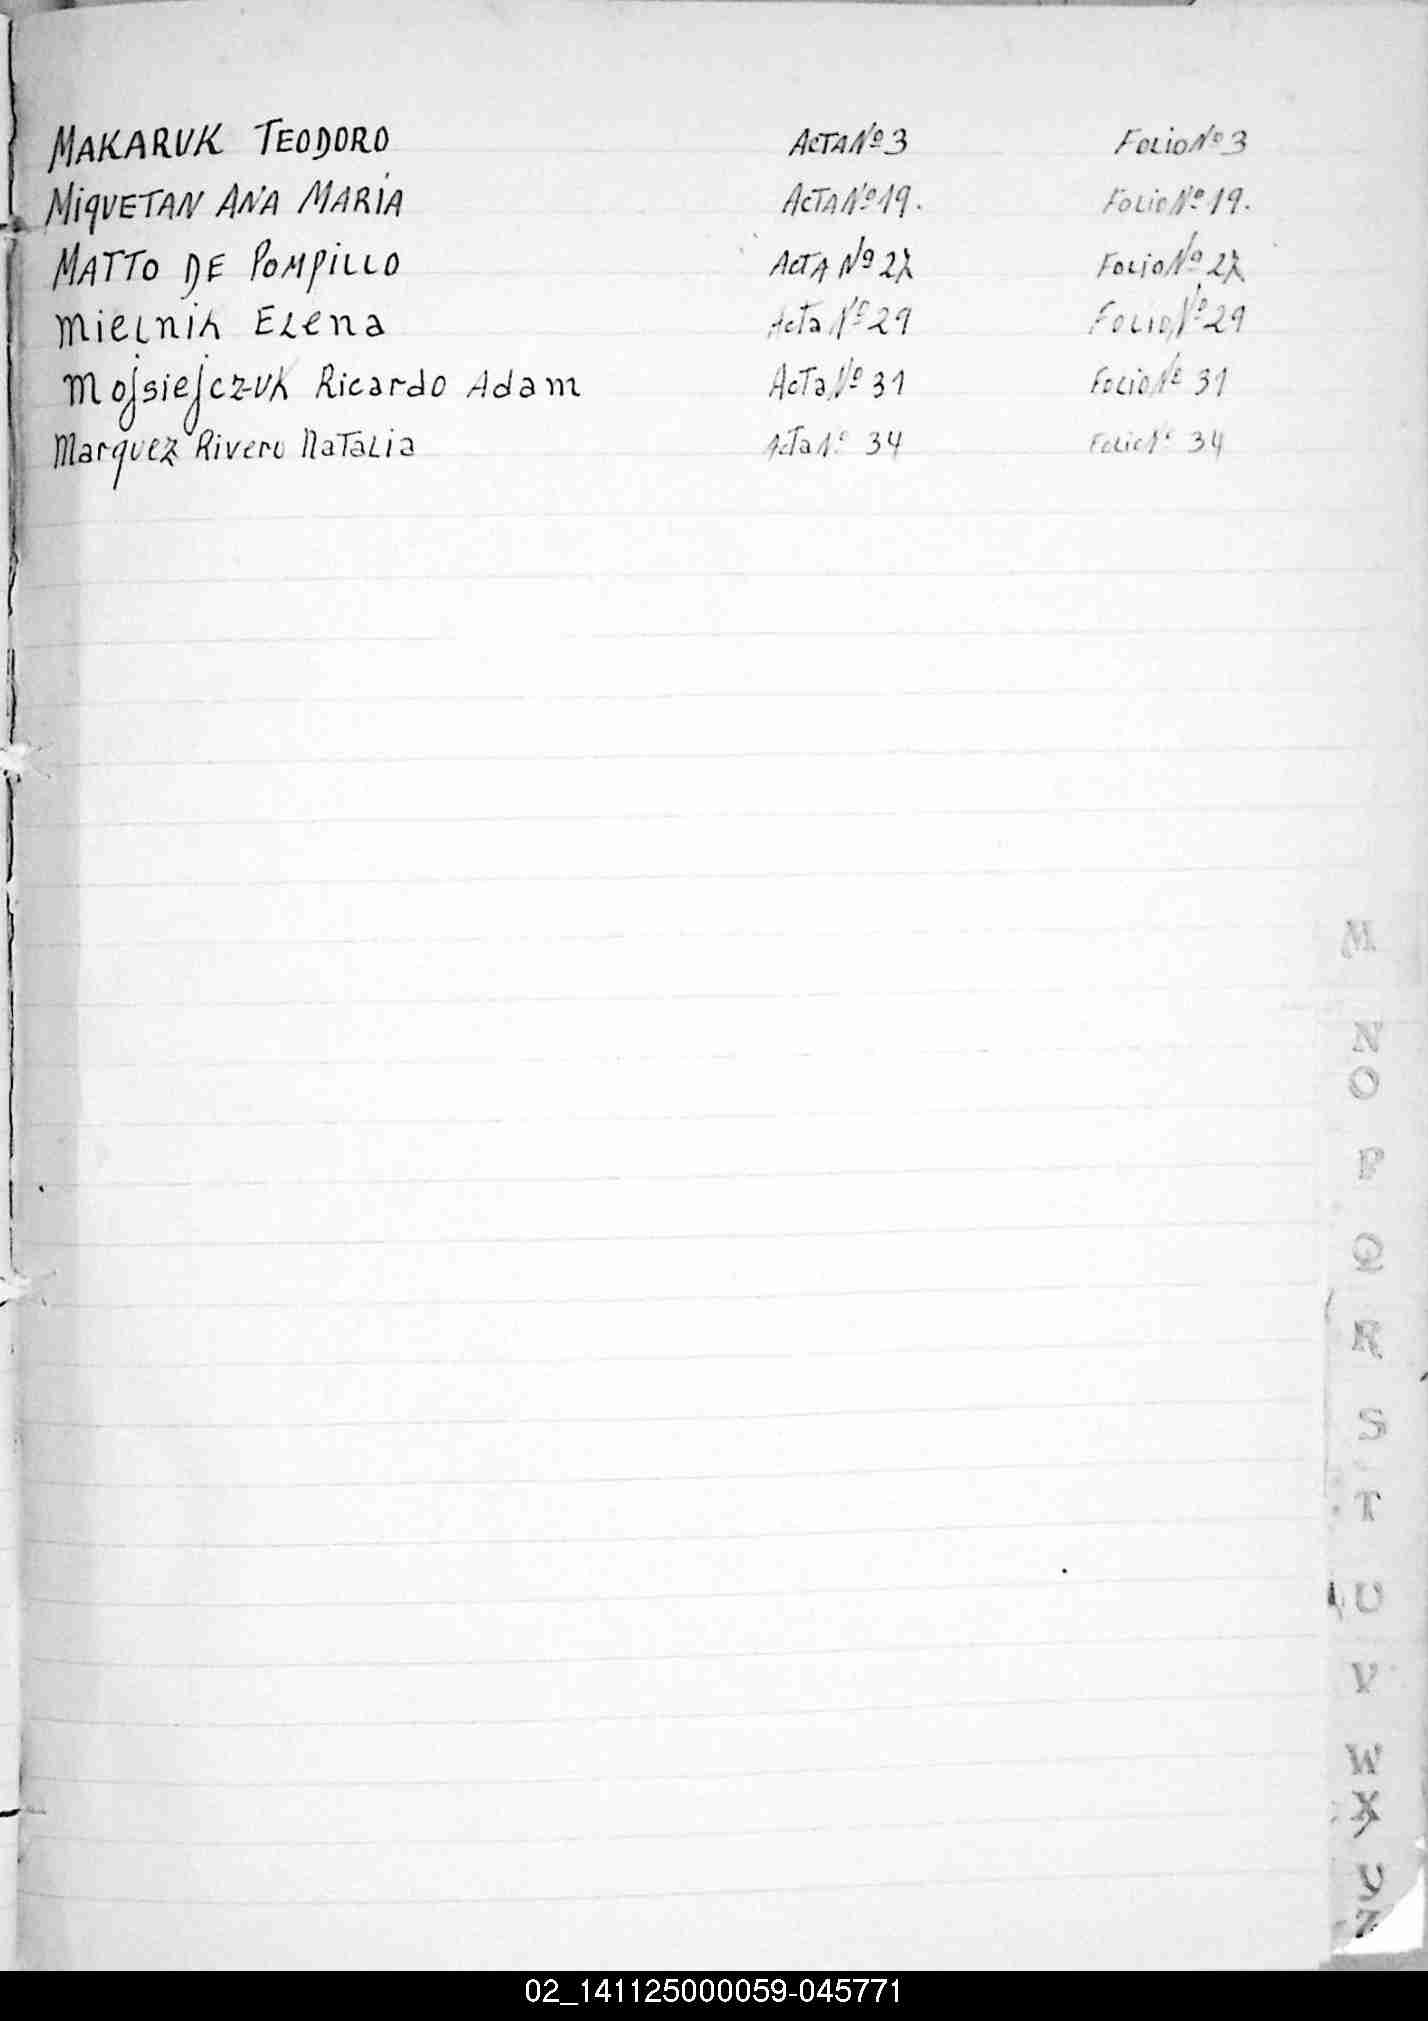 MAKARUK TEODORO ACTA Nº 3 FOLIO Nº 3
MiqUETAN ANA MARIA ACTA Nº 19. FOLIO Nº 19.
MATTO DE POMPILLO ACTA Nº 27 FOLIO Nº 27
Mielnik Elena Acta Nº 29 Folio Nº 29
Mojsiejczuk Ricardo Adam Acta Nº 31 Folio Nº 31
Marquez Rivero Natalia Acta Nº 34 Folio Nº 34
M
N
O
P
Q
R
S
T
U
V
W
X
Y
Z
02_141125000059-045771